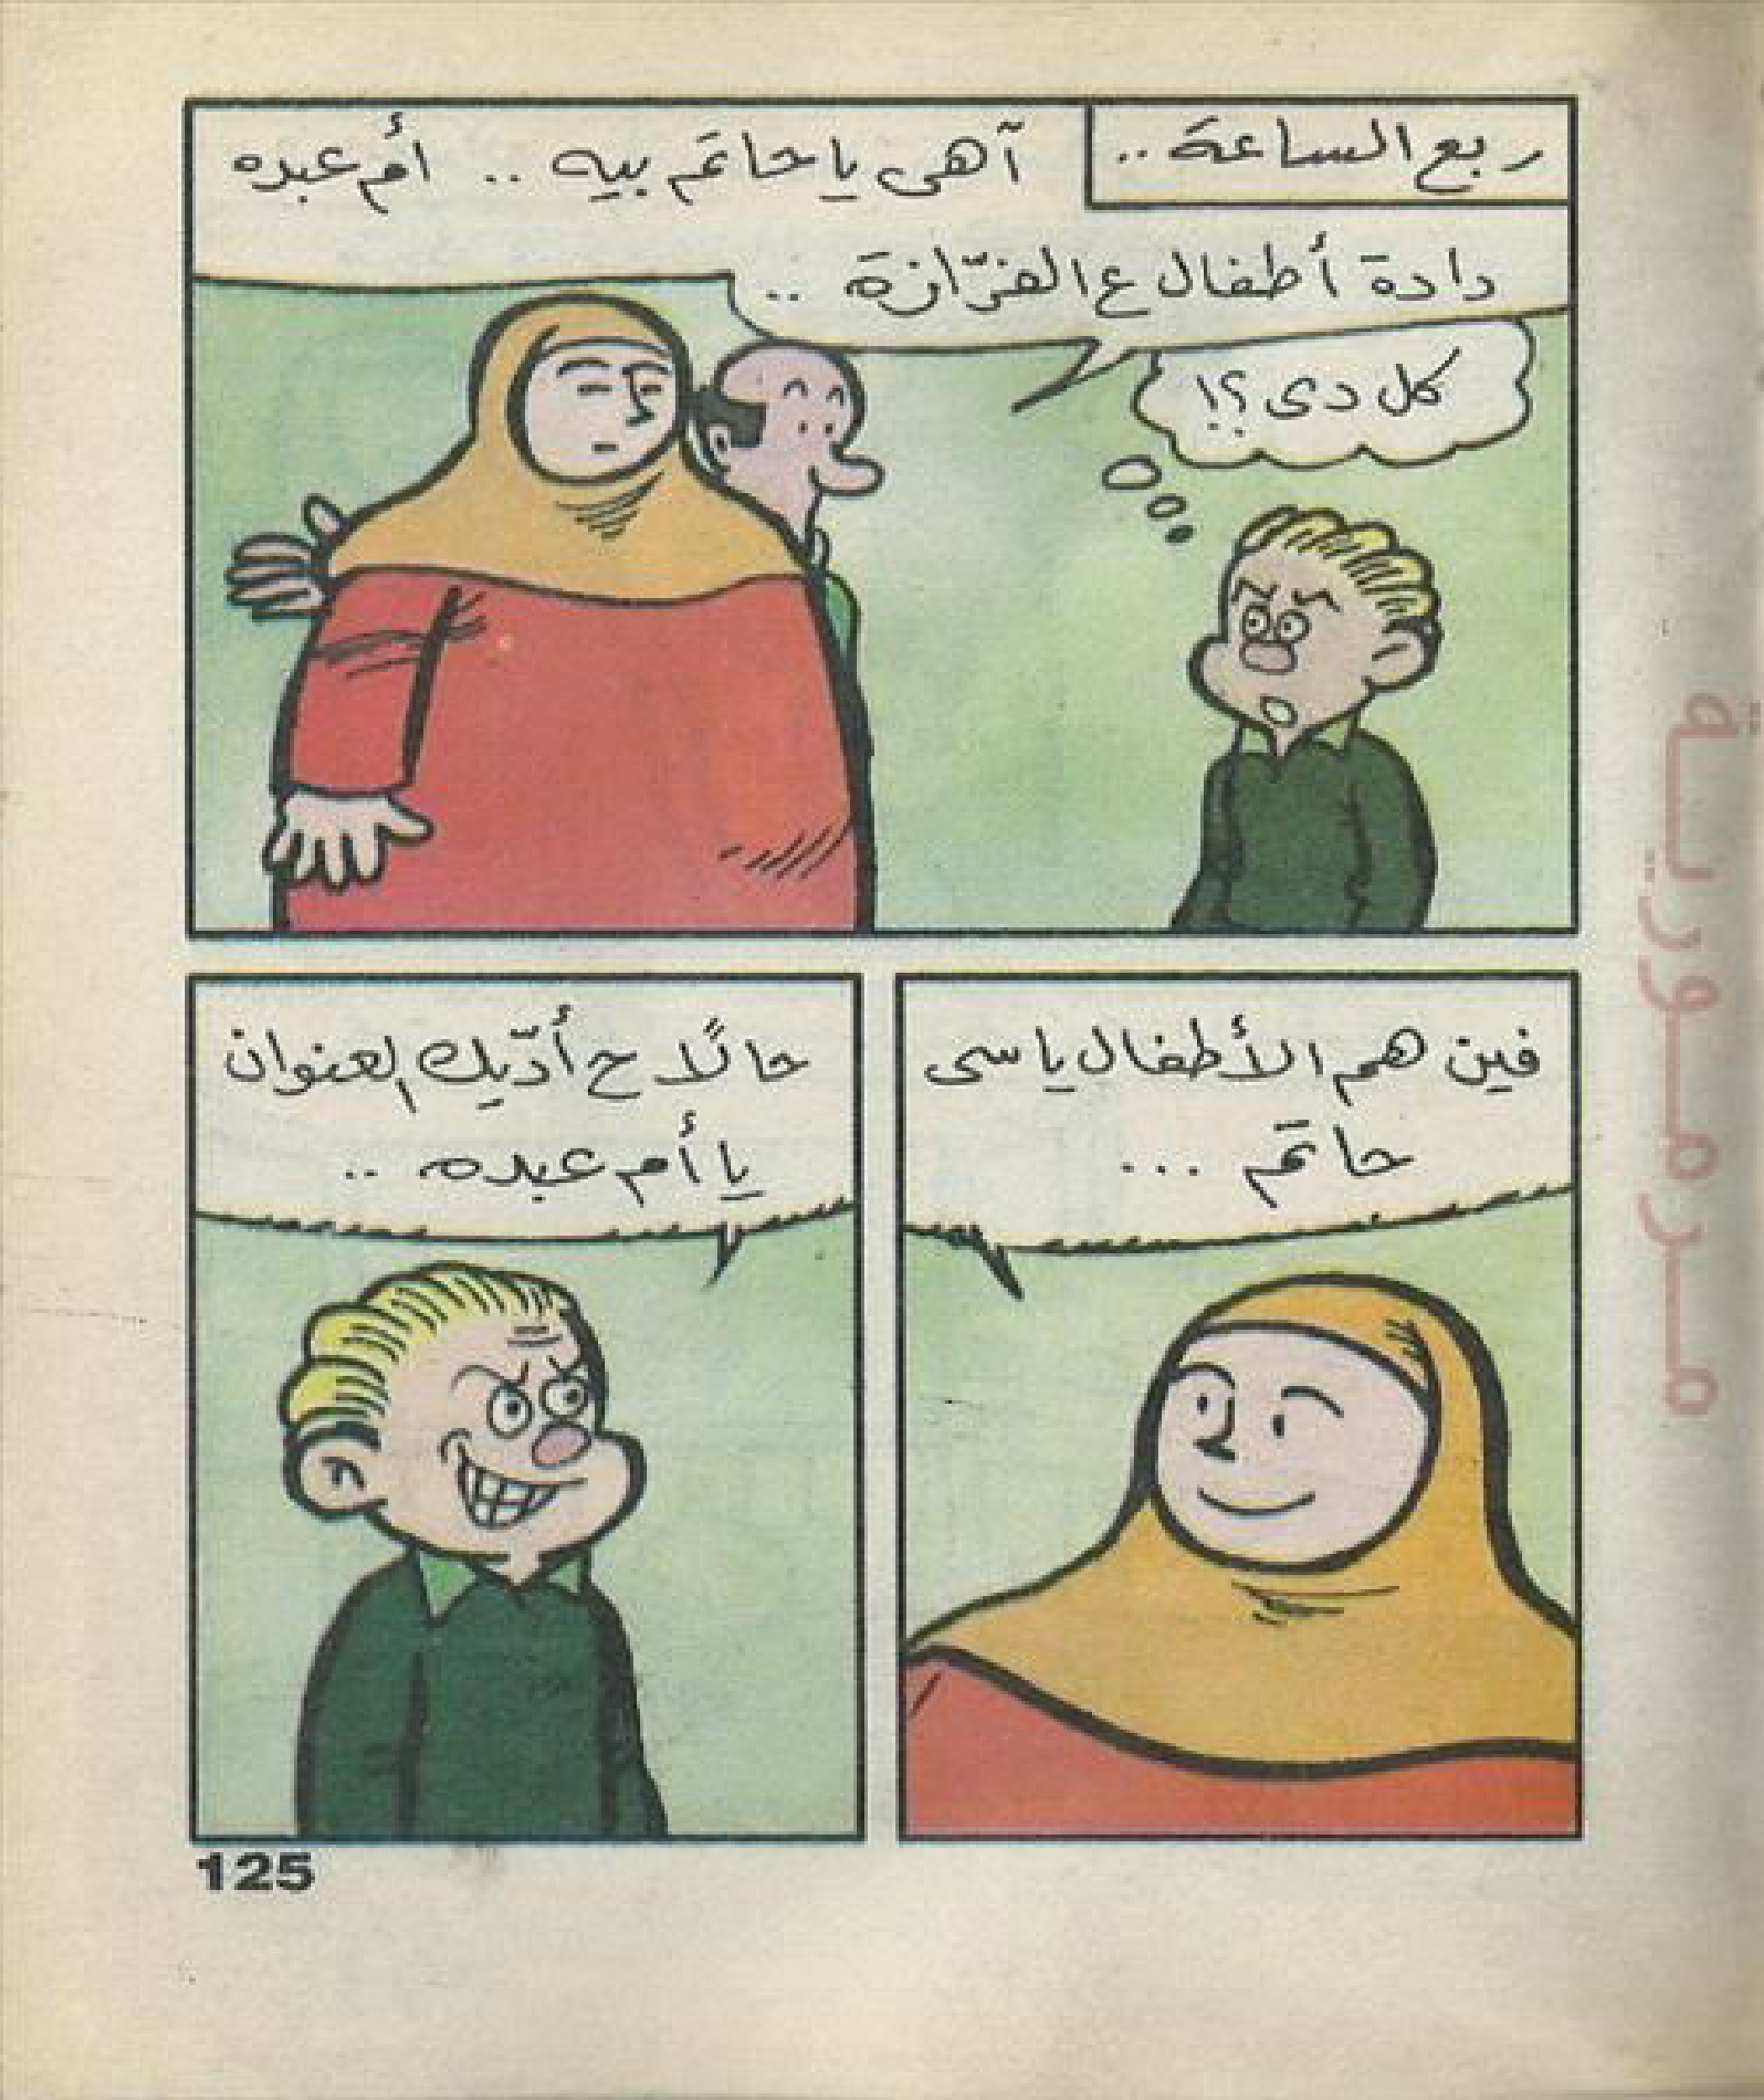 ربع الساعة ..
آهى يا حاتم بيه .. أم عبده
دادة أطفال ع الفرّازة ..
كل دى ؟!
فين هم الأطفال يا سى
حاتم ...
حالًا ح أدّيك العنوان
يا أم عبده ..
125